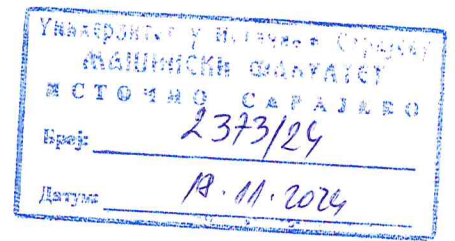 Универзитет у Источном Сарајеву
МАШИНСКИ ФАКУЛТЕТ
ИСТОЧНО САРАЈЕВО
Број: 2373/24
Датум: 11.2024